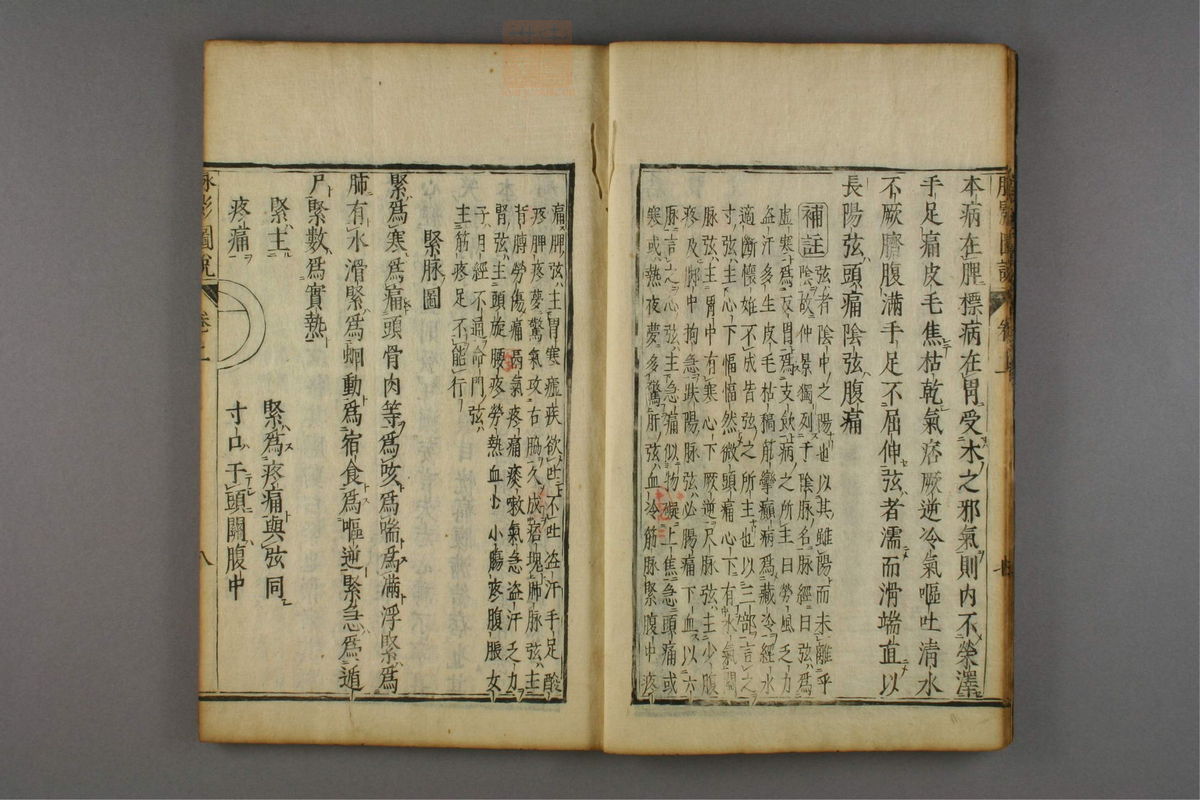 本病在脾標病在胃受木之邪氣則内不榮澤
手足痛皮毛焦枯乾氣痞厥逆冷氣嘔吐清水
不厥臍腹滿手足不屈伸弦者濡而滑端直以
長陽弦頭痛陰弦腹痛
補註
弦者陰中之陽也以其雖陽而未離乎
陰故仲景獨列于陰脉名脉經曰弦爲
虚寒爲反胃爲支飲病之所主曰勞風乏力
盗汗多生皮毛枯稿筋攣癲病爲藏冷經水
適斷懷姙不成皆弦之所主也以三部言之
寸弦主心下愊愊然微頭痛心下有水氣關
脉弦主胃中有寒心下厥逆尺脉弦主少腹
疼及脚中拘急趺陽脉弦必腸痛下血以六
脉言之心弦主急痛似物礙上焦急頭痛或
寒或熱夜夢多驚肝弦血冷筋脉緊腹中疼
痛脾弦主胃寒瘧疾欲吐不吐盗汗手足酸
疼胛疼夢驚氣攻右脇久成痞塊肺脉弦主
背膊勞傷痛膈氣疼痛痰嗽氣急盗汗乏力
腎弦主頭旋腰疼勞熱血卜小腸疼腹脹女
子月經不通命門弦
主筋疼足不能行
緊脉圖
緊爲寒爲痛頭骨肉等爲咳爲喘爲滿浮緊爲
肺有水滑緊爲蛔動爲宿食爲嘔逆緊急爲遁
尸緊數爲實熱
緊主
緊爲疼痛與弦同
疼痛
寸口于頭關腹中
脉影圖說
卷上
八